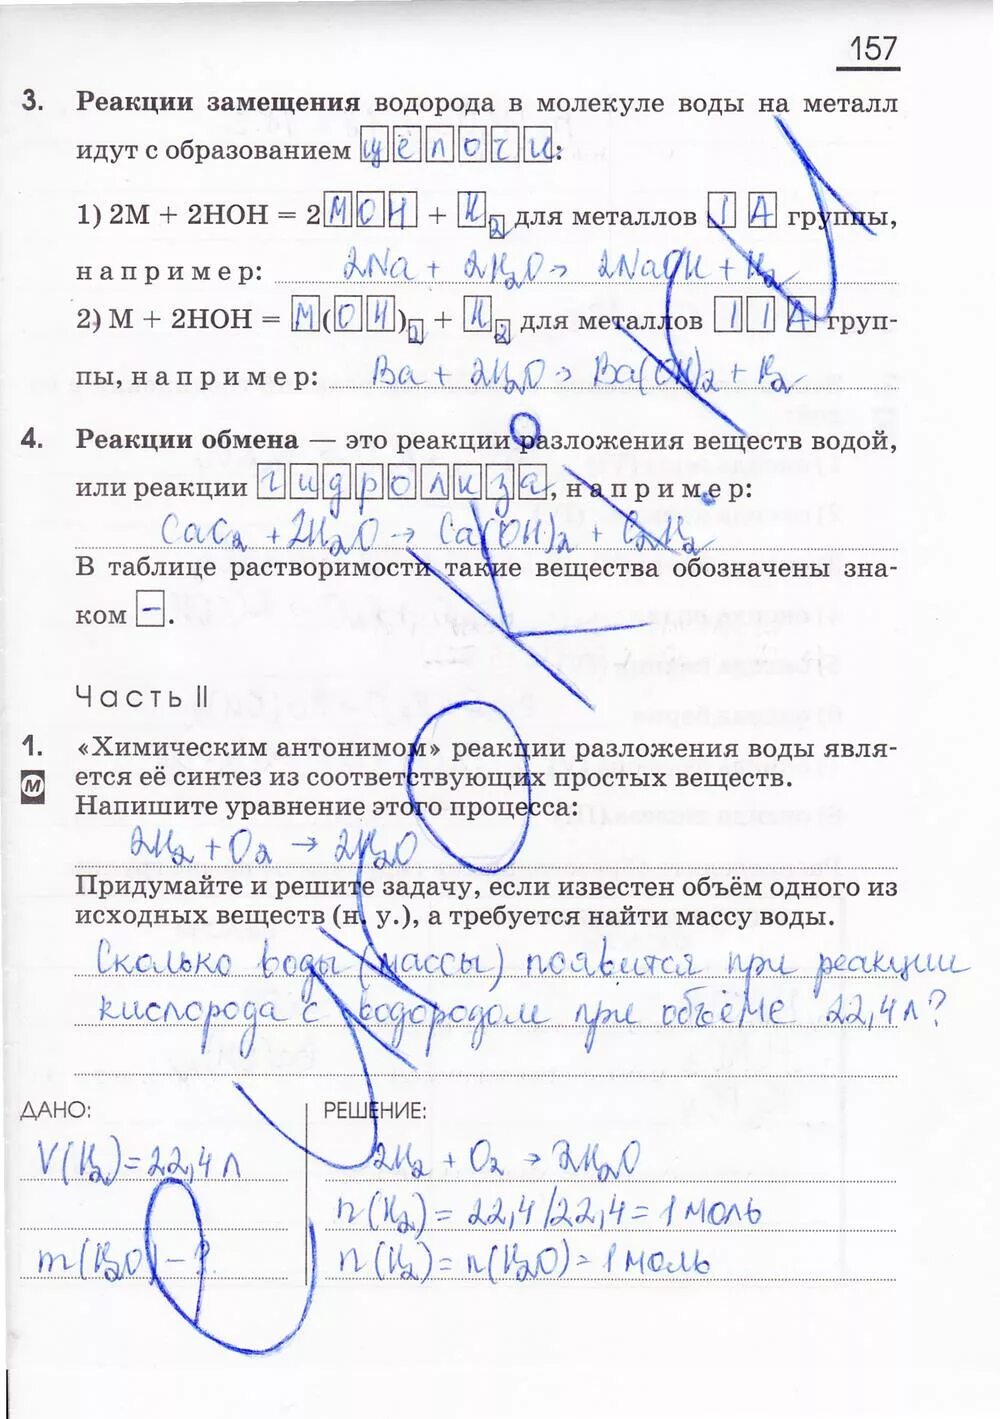 157
3. Реакции замещения водорода в молекуле воды на металл
идут с образованием щёлочи:
1) 2М + 2НОН = 2МОН + H₂ для металлов IА группы,
например: 2Na + 2H₂O → 2NaOH + H₂
2) М + 2НОН = М(ОН)₂ + H₂ для металлов IIА груп-
пы, например: Ba + 2H₂O → Ba(OH)₂ + H₂
4. Реакции обмена — это реакции разложения веществ водой,
или реакции гидролиза, например:
CaC₂ + 2H₂O → Ca(OH)₂ + C₂H₂
В таблице растворимости такие вещества обозначены зна-
ком –.
Часть II
1. «Химическим антонимом» реакции разложения воды явля-
М ется её синтез из соответствующих простых веществ.
Напишите уравнение этого процесса:
2H₂ + O₂ → 2H₂O
Придумайте и решите задачу, если известен объём одного из
исходных веществ (н. у.), а требуется найти массу воды.
Сколько воды (массы) появится при реакции
кислорода с водородом при объёме 22,4 л?
ДАНО: РЕШЕНИЕ:
V(H₂) = 22,4 л 2H₂ + O₂ → 2H₂O
n(H₂) = 22,4/22,4 = 1 моль
m(H₂O) – ? n(H₂) = n(H₂O) = 1 моль